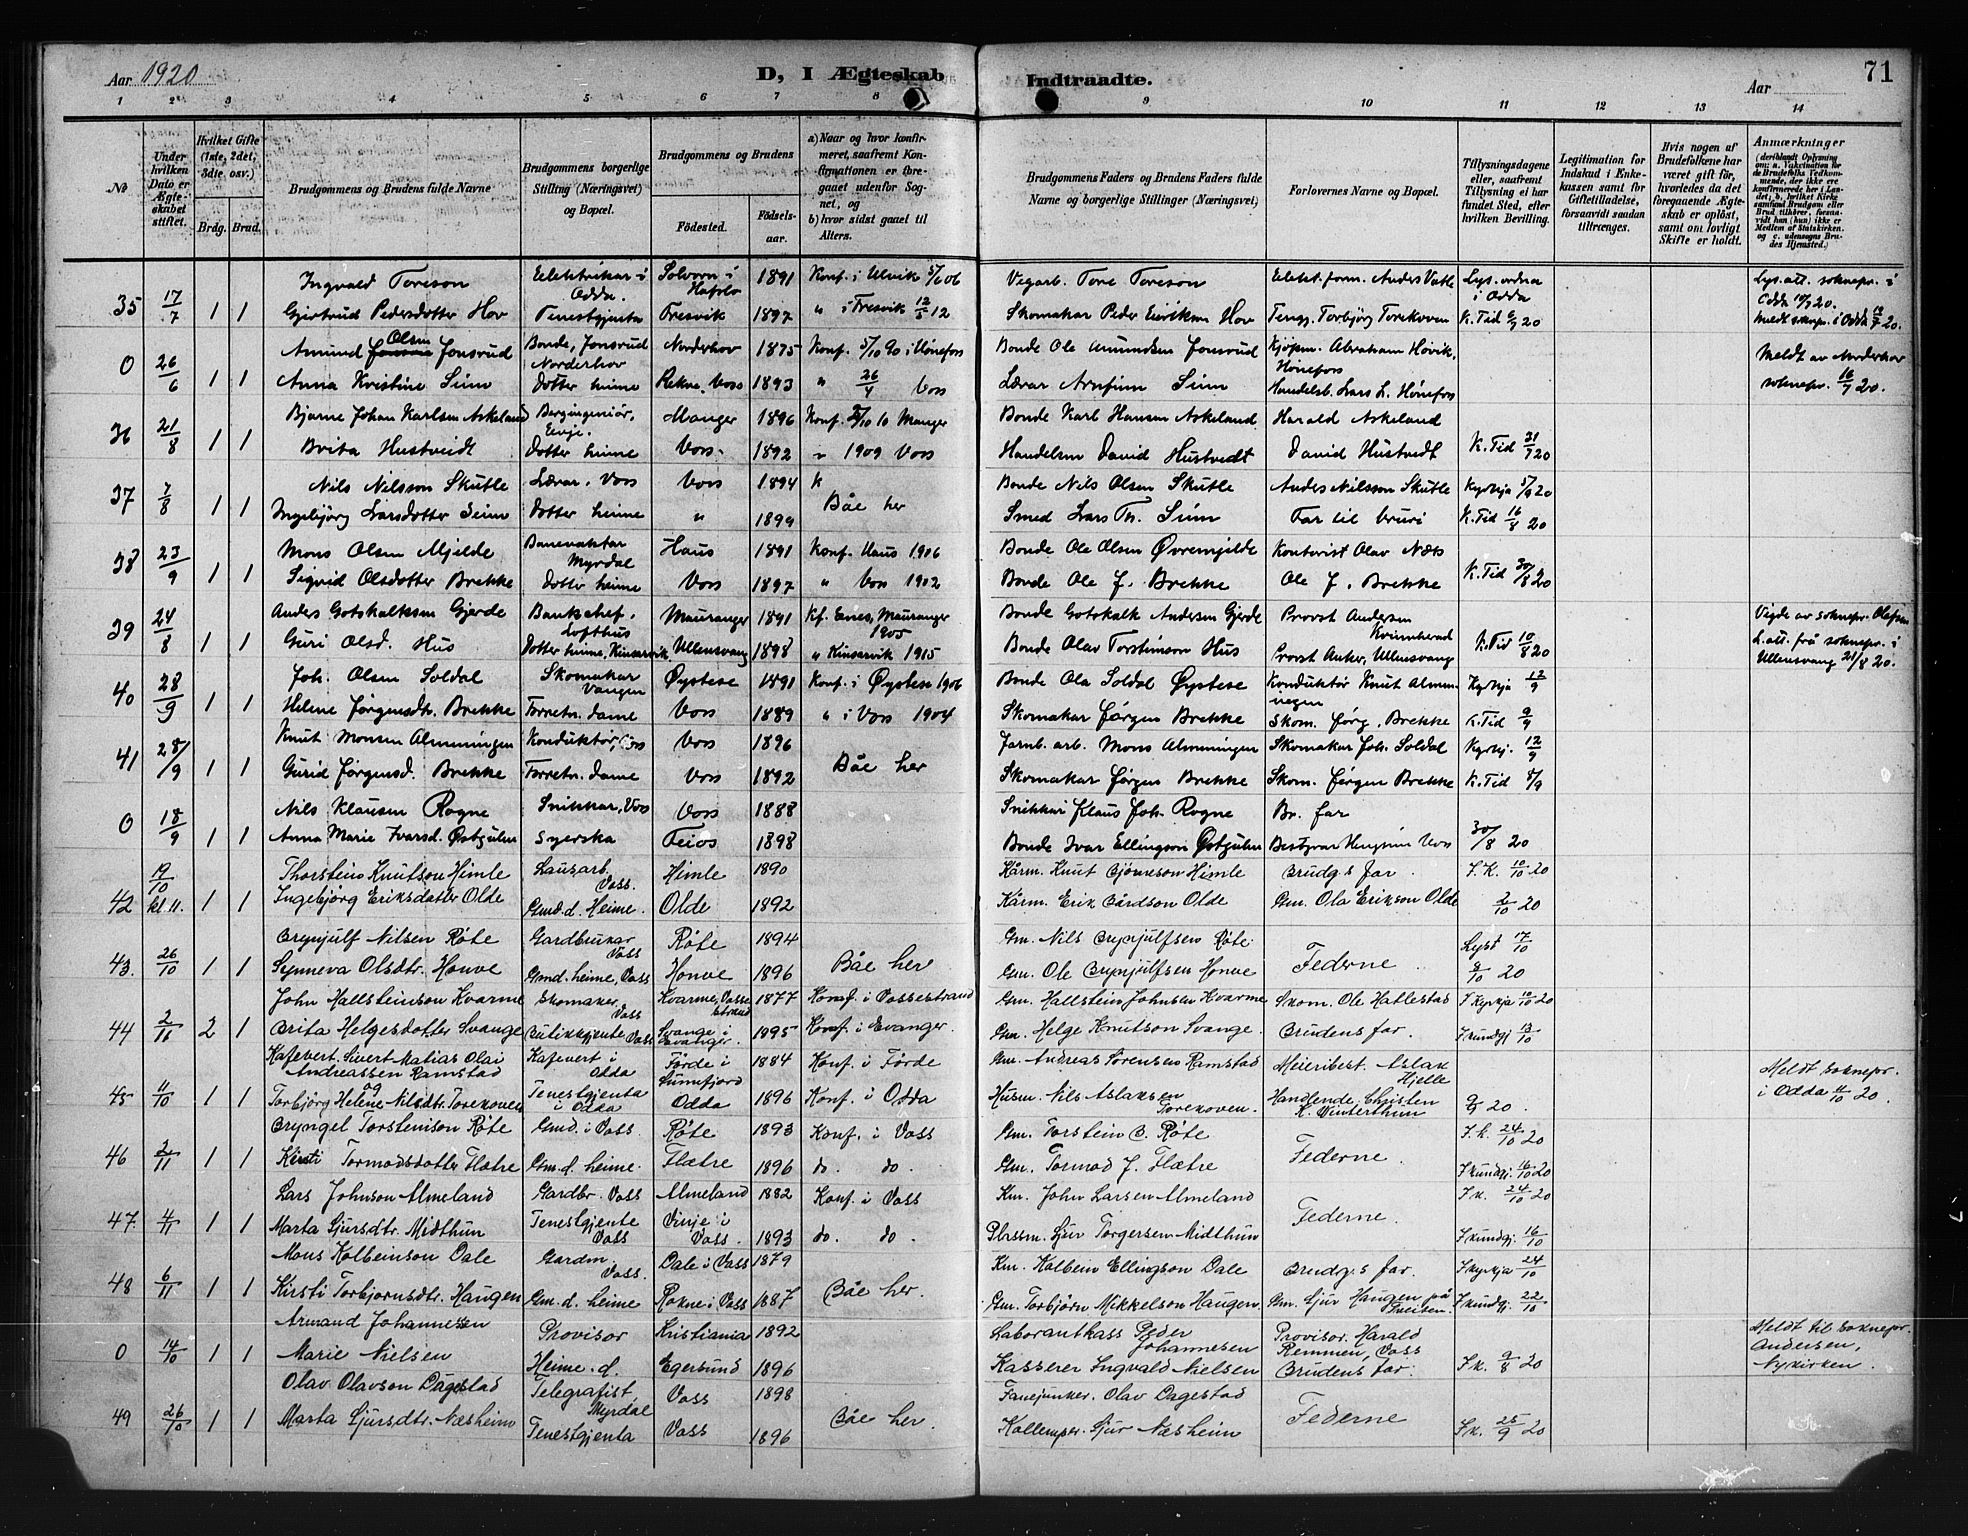 Aar 1920
D, I Ægteskab Indtraadte.
Aar
71
1 2 3 4 5 6 7 8 9 10 11 12 13 14
No
Under hvilken Dato er Ægteskabet stiftet.
Hvilket Gifte (1ste, 2det, 3dte osv.)
Brdg. Brud.
Brudgommens og Brudens fulde Navne
Brudgommens borgerlige Stilling (Næringsvei) og Bopæl.
Brudgommens og Brudens
Fødested. Fødselsaar.
a) Naar og hvor konfirmeret, saafremt Konfirmationen er foregaaet udenfor Sognet, og
b) hvor sidst gaaet til Alters.
Brudgommens Faders og Brudens Faders fulde Navne og borgerlige Stillinger (Næringsvei)
Forlovernes Navne og Bopæl.
Tillysningsdagene eller, saafremt Tillysning ei har fundet Sted, efter hvilken Bevilling.
Legitimation for Indskud i Enkekassen samt for Giftetilladelse, forsaavidt saadan tiltrænges.
Hvis nogen af Brudefolkene har været gift før, hvorledes da det foregaaende Ægteskab er opløst, samt om lovligt Skifte er holdt.
Anmærkninger (deriblandt Oplysning om: a. Vakcination for de Brudefolks Vedkommende, der ikke ere konfirmerede her i Landet; b. hvilket Kirkesamfund Brudgom eller Brud tilhører, forsaavidt han (hun) ikke er Medlem af Statskirken, og c. udensogns Brudes Hjemsted.)
35 17/7 1 1 Ingvald Toreson Eelektrikar i Odda. Solvorn i Hafslo 1891 Konf. i Ulvik 5/6 06 Vegarb. Tore Toreson Elekt. form. Anders Vatle Lys. ordna i Odda Lys. att. soknepr. i Odda 10/7 20.
Gjertrud Pedersdotter Hov Tenestgjenta Fresvik 1897 " i Fresvik 12/5 12 Skomakar Peder Eirikson Hov Teng. Torbjørg Torekoven K. Tid 6/7 20 Meldt soknepr. i Odda 19/7 20.
0 26/6 1 1 Amund Olsen Jonsrud Bonde, Jonsrud Norderhov Norderhov 1875 Konf. 5/10 90 i Hønefos Bonde Ole Amundsen Jonsrud Kjøpm. Abraham Høvik, Hønefos Meldt av Norderhov
Anna Kristine Seim Dotter heime Rekve, Voss 1893 " 26/4 Voss Lærar Arnfinn Seim Handelsb. Lars L. Hønefos soknepr. 16/7 20.
36 21/8 1 1 Bjarne Johan Karlsen Askeland Bergingeniør, Evje. Manger 1896 Konf. 2/10 10 Manger Bonde Karl Hansen Askeland Harald Askeland
Brita Hustveidt Dotter heime Voss. 1892 " 1909 Voss Handelsm David Hustvedt David Hustvedt K. Tid 31/7 20
37 7/8 1 1 Nils Nilsson Skutle Lærar. Voss Voss 1894 K Bonde Nils Olsen Skutle Anders Nilsson Skutle Kyrkja 5/9 20
Ingebjørg Larsdotter Seim Dotter heime " 1899 Båe her Smed Lars Th. Seim Far til bruri K. Tid 16/8 20
38 23/9 1 1 Mons Olsen Mjelde Banevaktar Myrdal Haus 1891 Konf. Haus 1906 Bonde Ole Olsen Øvremjelde Kontorist Olav Næts
Sigrid Olsdotter Brekke Dotter heime Voss 1897 " Voss 1902 Bonde Ole J. Brekke Ole J. Brekke K. Tid 30/8 20
39 24/8 1 1 Anders Gotskalksen Gjerde Bankchef, Lofthus Mauranger 1891 Kf. Enes, Mauranger 1905 Bonde Gotskalk Andersen Gjerde Provst Andersen Kvinnherad Vigde av soknepr. Olafsen
Guri Olsd. Hus Dotter heime, Kinsarvik Ullensvang 1898 " Kinsarvik 1915 Bonde Olav Torsteinson Hus Provst Anker, Ullensvang K. Tid 10/8 20 L. att. frå soknepr. i Ullensvang 21/8 20.
40 28/9 1 1 Joh. Olsen Soldal Skomakar Vangen Øystese 1891 Konf. i Øystese 1906 Bonde Ola Soldal Øystese Konduktør Knut Almenningen Kyrkja 12/9
Helene Jørgensdtr. Brekke Forretn. dame Voss 1889 " i Voss 1904 Skomakar Jørgen Brekke Skom. Jørg. Brekke K. Tid 9/9
41 28/9 1 1 Knut Monsen Almenningen Konduktør, Voss Voss 1896 Jarnb. arb. Mons Almenningen Skomakar Joh. Soldal Kyrkj. 12/9
Gurid Jørgensd. Brekke Forretn. dame Voss 1892 Båe her Skomakar Jørgen Brekke Skom. Jørgen Brekke K. Tid 8/9
0 18/9 1 1 Nils Klausen Rogne Snikkar, Voss Voss 1888 Snikkar Klaus Joh. Rogne Br. far
Anna Marie Ivarsd. Østgulen Syerska Feios 1898 Bonde Ivar Ellingson Østgulen Voss 30/8 20
42 19/10 kl 11. 1 1 Thorstein Knutson Himle Lausarb. Voss. Himle 1890 Kårm. Knut Bjørneson Himle Brudg.s far. I. K. 10/10 20
Ingebjørg Eriksdotter Olde Gmd. d. Heime. Olde 1892 Kårm. Erik Bårdson Olde Gm. Ola Erikson Olde 2/10 20
43. 26/10 1 1 Brynjulf Nilsen Røte Gardbrukar Voss Røte 1894 Gm. Nils Brynjulfsen Røte. Lyst 17/10
Synneva Olsdtr. Honve Gmd. heime, Voss Honve 1896 Båe her Gm. Ole Brynjulfsen Honve Federne. 9/10 20
44 2/11 2 1 John Hallsteinson Kvarme Skomaker, Voss Kvarme, Vossestrand 1877 Konf. i Vossestrand Gm. Hallstein Johnsen Kvarme Skom. Ole Hatlestad I kyrkja 10/10 20
Brita Helgesdotter Svange Butikkgjente Voss Svange i Evanger. 1895 Konf. i Evanger. Gm. Helge Knutson Svange. Brudens far. I kundgj 13/10
45 11/10 1 1 Kafevert. Sivert Matias Olai Andreassen Ramstad Kafevert i Odda Førde i Sunnfjord 1884 Konf. i Førde Gm. Andreas Sørensen Ramstad Meieribest. Aslak Hjelle Meldt soknepr.
og Torbjørg Helene Nilsdtr. Torekoven Tenestgjenta i Odda Odda 1896 Konf. i Odda Husm. Nils Aslaksen Torekoven. Handlende Christen K. Winterthun 9/9 20. i Odda 11/10 20.
46 2/11 1 1 Bryngel Torsteinson Røte Gmd. i Voss. Røte 1893 Konf. i Voss Gm. Torstein B. Røte I. k. 24/10 20
Kirsti Tormodsdotter Flatre Gm. d. heime. Flætre 1896 do. do. Gm. Tormod J. Flætre Federne. I kundgj 16/10 20
47. 4/11 1 1 Lars Johnson Almeland Gardbr. Voss Almeland 1882 Konf. i Voss Km. John Larsen Almeland I k. 24/10 20
Marta Sjursdtr. Midthun Tenestgjente Voss Vinje i Voss. 1893 do. do. Plassm. Sjur Torgersen Midthun Federne. I kundgj. 16/10
48 6/11 1 1 Mons Kolbeinson Dale Gardm. Voss. Dale i Voss 1879 Km. Kolbein Ellingson Dale Brudg.s far. I kyrkja 24/10
Kirsti Torbjørnsdtr. Haugen Gm. d. heime Rokne i Voss 1887 Båe her. Gm. Torbjørn Mikkelson Haugen Gm. Sjur Haugen på I kundgj 22/10
0 14/10 1 1 Armand Johannessen Provisor Kristiania 1892 Laborantkass Peder Johannesen Provisor. Harald Remmen, Voss Meldt til soknepr. Andersen, Nykirken.
Marie Nielsen Heime. d. Egersund 1896 Kasserer Ingvald Nielsen Brudens far. I k. 9/8 20
49 26/10 1 1 Olav Olavson Dagestad Telegrafist, Myrdal Voss 1898 Fanejunker. Olav Dagestad
Marta Sjursdtr. Næsheim Tenestgjenta Voss 1896 Båe her. Sjur Næsheim Federne I k. 25/9 20